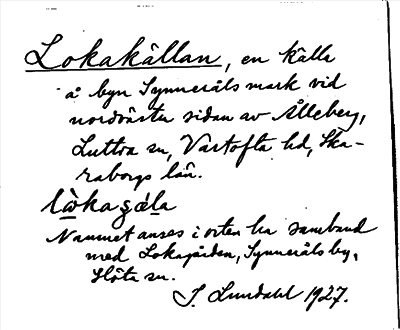 Lokakällan, en källa
å byn Synneråls mark vid
nordvästra sidan av Ålleberg,
Luttra sn, Vartofta hd, Ska-
raborgs län.
lòkagǻla
Namnet anses i orten ha samband
med Lokagården, Synneråls by,
Slöta sn.
S. Lundahl 1927.